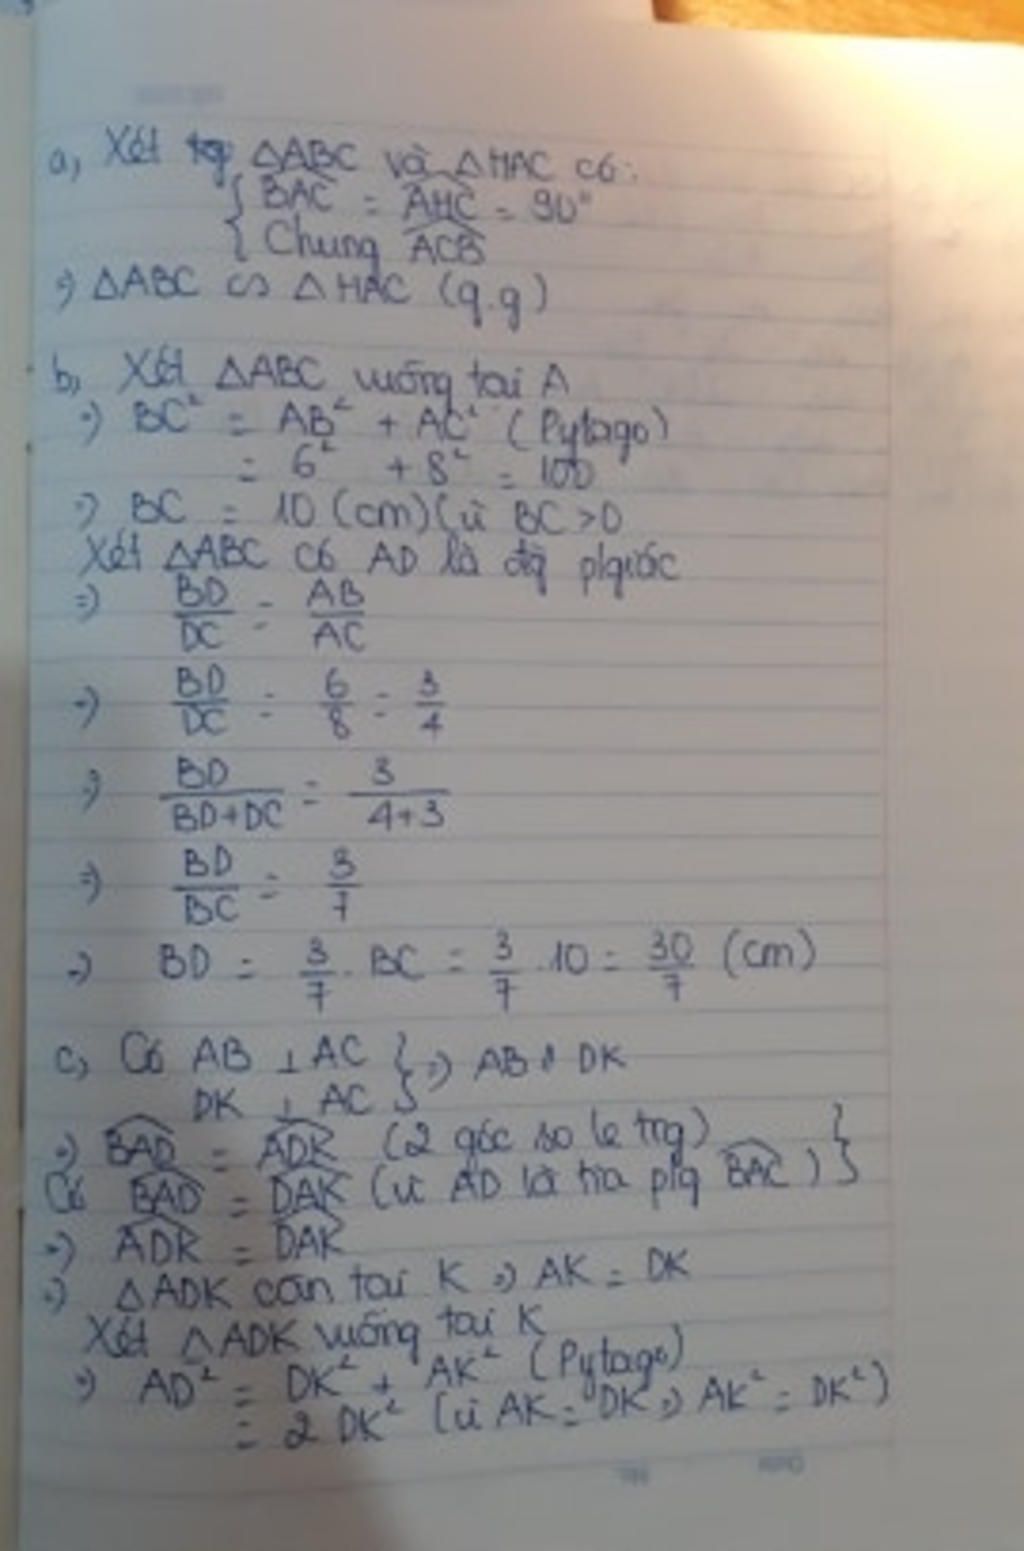 a, Xét ΔABC và ΔHAC có:
{ BAC = AHC = 90°
{ Chung ACB
=) ΔABC ∽ ΔHAC (g.g)
b, Xét ΔABC vuông tại A
=) BC² = AB² + AC² (Pytago)
= 6² + 8² = 100
=) BC = 10 (cm) (vì BC >0
Xét ΔABC có AD là đg plgiác
=) BD/DC = AB/AC
=) BD/DC = 6/8 = 3/4
=) BD/BD+DC = 3/4+3
=) BD/BC = 3/7
=) BD = 3/7 . BC = 3/7 .10 = 30/7 (cm)
c, Có AB ⊥ AC } =) AB // DK
DK ⊥ AC }
=) BAD = ADK (2 góc so le trg) }
Có BAD = DAK (vì AD là tia plg BAC) }
=) ADK = DAK
=) ΔADK cân tại K =) AK = DK
Xét ΔADK vuông tại K
=) AD² = DK² + AK² (Pytago)
= 2 DK² (vì AK = DK =) AK² = DK²)